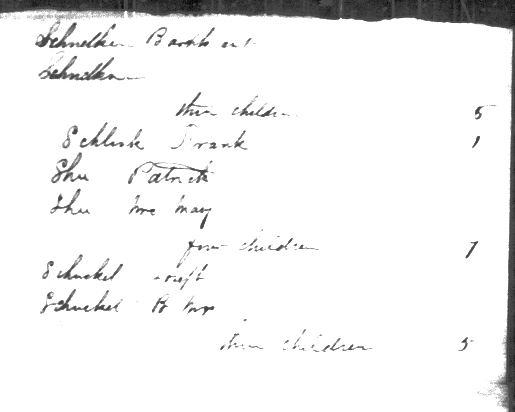 Schnelker
Schnelker
three children 5
Schlink Frank 1
Shu Patrick
Shu Mrs Mary
four children 7
Schuckel
Schuckel Mrs
three children 5